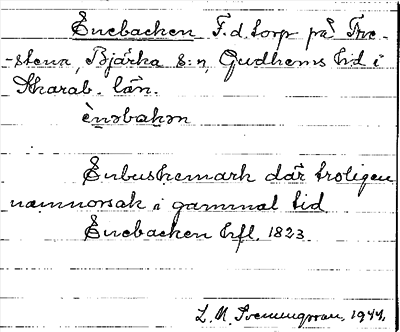 Enebacken F.d. torp på Tre-
-stena, Bjärka s:n, Gudhems hd i
Skarab. län.
ènəbakən
Enbuskemark där troligen
namnorsak i gammal tid
Enebacken hfl. 1823.
L. N. 1944.